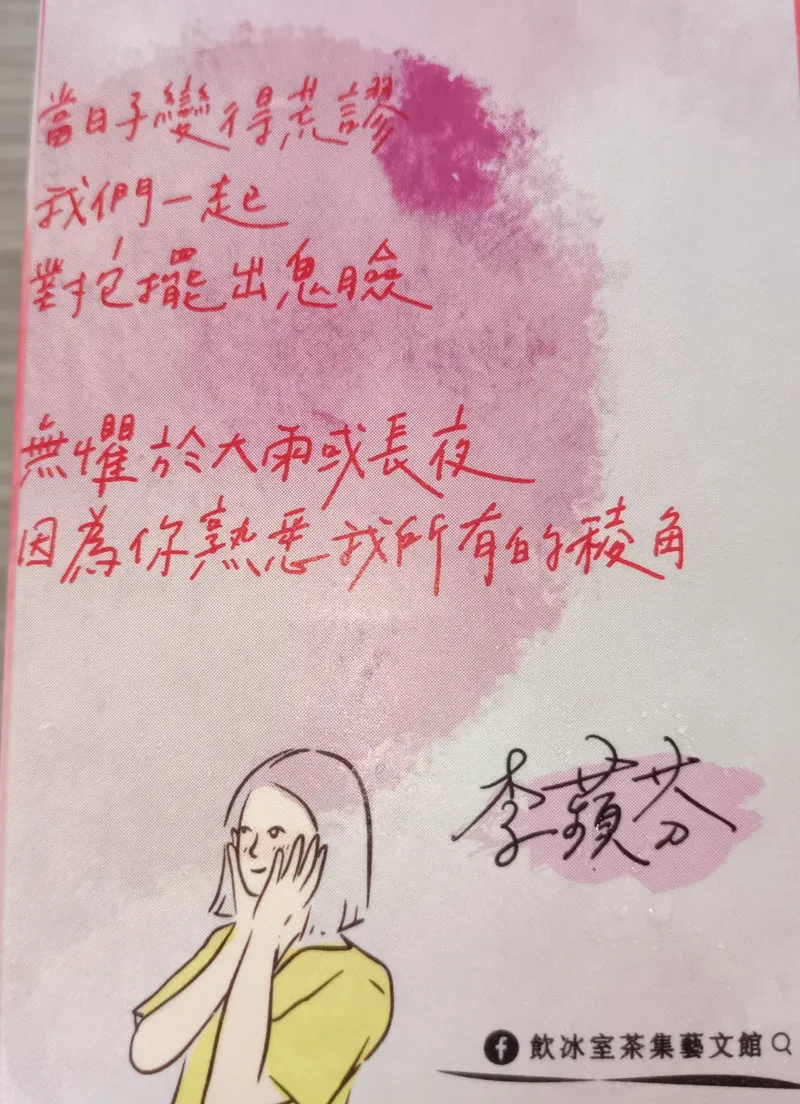 當日子變得荒謬
我們一起
對抱擺出鬼臉
無懼於大雨或長夜
因為你熟悉我所有的稜角
李蘋芬
飲冰室茶集藝文館